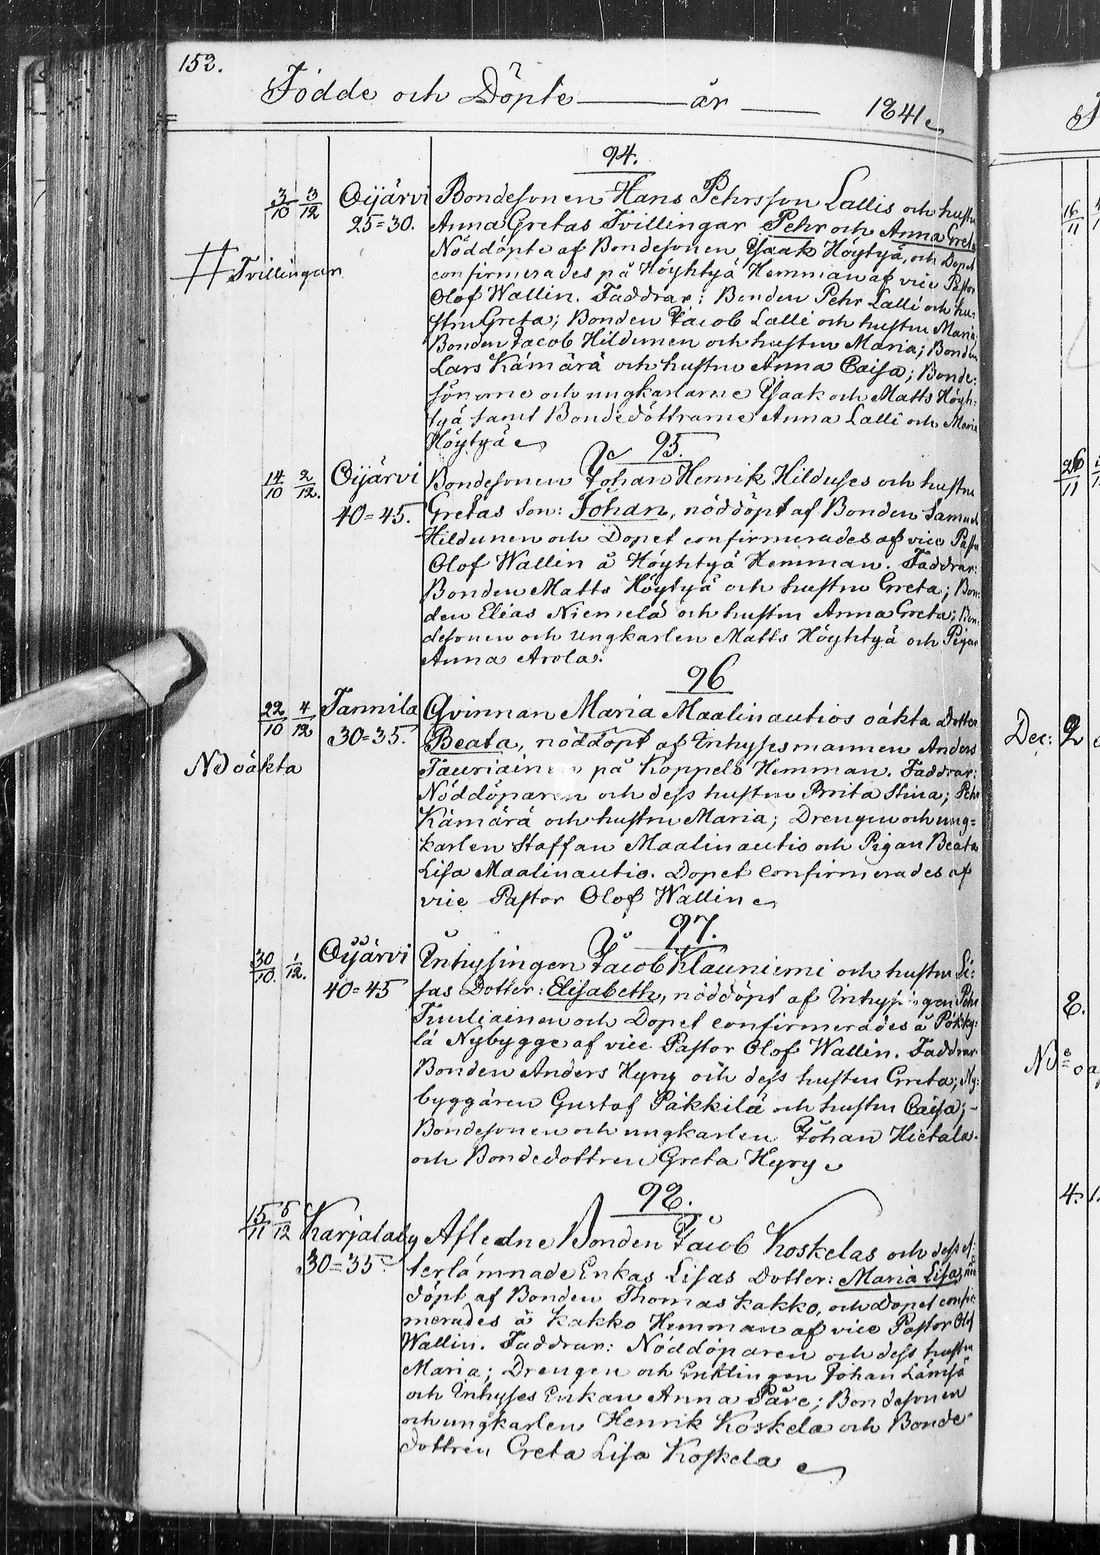 153.
Födde och Döpte — år — 1841
94.
3/10 3/12 Oijärvi Bondesonen Hans Pehrsson Lallis och hustru
25=30. Anna Gretas Tvillingar Pehr och Anna Greta
Nöddöpte af Bondesonen Isaak Höytyä, och Dopet
# Tvillingar confirmerades på Höyhtyä Hemman af vice Pastor
Olof Wallin. Faddrar: Bonden Pehr Lalli och hu-
stru Greta; Bonden Jacob Lalli och hustru Maria,
Bonden Jacob Hildunen och hustru Maria; Bonden
Lars Kämärä och hustru Anna Caisa; Bonde-
sönerne och ungkarlarne Isaak och Matts Höyh-
tyä samt Bondedöttrarne Anna Lalli och Maria
Höytyä
95.
14/10 2/12. Oijärvi Bondesonen Johan Henrik Hilduses och hustru
40=45. Gretas Son: Johan, nöddöpt af Bonden Samuel
Hildunen och Dopet confirmerades af vice Pastor
Olof Wallin å Höyhtyä Hemman. Faddrar:
Bonden Matts Höytyä och hustru Greta; Bon-
den Elias Niemelä och hustru Anna Greta; Bon-
desonen och Ungkarlen Matts Höyhtyä och Pigan
Anna Arola.
96
22/10 4/12 Tannila Qvinnan Maria Maalinautios oäkta dotter
30=35. Beata, nöddöpt af Inhysesmannen Anders
NB oäkta Tauriainen på Koppelo Hemman. Faddrar:
Nöddöparen och dess hustru Brita Stina; Pehr
Kämärä och hustru Maria; Drengen och ung-
karlen Staffan Maalinautio och Pigan Beata
Lisa Maalinautio. Dopet confirmerades af
vice Pastor Olof Wallin
97.
30/10. 1/12. Oijärvi Inhysingen Jacob Klauniemi och hustru Li-
40=45 sas Dotter: Elisabeth, nöddöpt af Inhysingen Pehr
Tuuliainen och Dopet confirmerades å Päkky-
lä Nybygge af vice Pastor Olof Wallin. Faddrar
Bonden Anders Hyry och dess hustru Greta; Ny-
byggaren Gustaf Päkkilä och hustru Caisa; -
Bondesonen och ungkarlen Johan Hietala.
och Bondedottren Greta Hyry
98.
15/11 5/12 Karjalaby Aflidne Bonden Jacob Koskelas och dess ef-
30=35 terlämnade Enkas Lisas Dotter: Maria Lisa, nöd
döpt af Bonden Thomas Kakko, och Dopet confir
merades å Kakko Hemman af vice Pastor Olof
Wallin. Faddrar: Nöddöparen och dess hustru
Maria; Drengen och Enklingen Johan Lämsä
och Inhyses Enkan Anna Päre; Bondesonen
och ungkarlen Henrik Koskela och Bonde
dottren Greta Lisa Koskela
16/11
26/11
Dec: 2
2.
4.